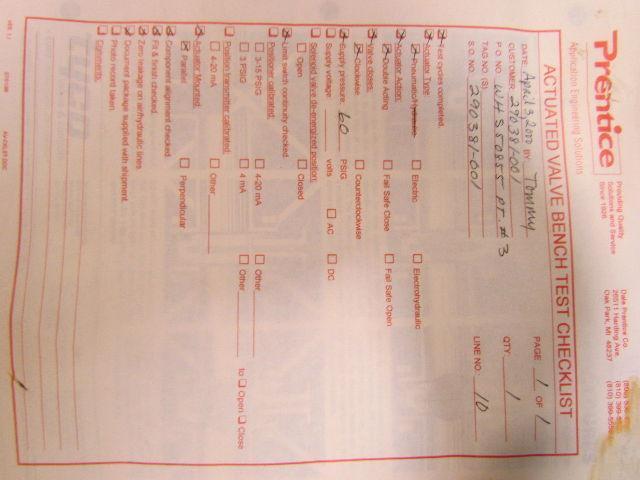 Prentice
Application Engineering Solutions
Providing Quality
Solutions and Service
Since 1926
Dale Prentice Co.
26511 Harding Ave.
Oak Park, MI 48237
(810) 399-5559
ACTUATED VALVE BENCH TEST CHECKLIST
DATE April 3, 2000 BY Tommy PAGE 1 OF 1
CUSTOMER 290381-001
P.O. NO. WHS 50855 PT. #3 QTY. 1
TAG NO. (S)
S.O. NO. 290381-001 LINE NO. 10
Test cycles completed.
Actuator Type
Pneumatic/Hydraulic Electric Electrohydraulic
Actuator Action:
Double Acting Fail Safe Close Fail Safe Open
Valve closes:
Clockwise Counterclockwise
Supply pressure: 60 PSIG
Supply voltage volts AC DC
Solenoid valve de-energized position:
Open Closed
Limit switch continuity checked.
Positioner calibrated:
3-15 PSIG 4-20 mA Other
3 PSIG 4 mA Other to Open Close
Position transmitter calibrated:
4-20 mA Other
Actuator Mounted:
Parallel Perpendicular
Component alignment checked.
Fit & finish checked.
Zero leakage on air/hydraulic lines.
Document package supplied with shipment.
Photo record taken.
Comments: